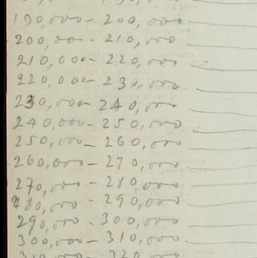 190,000 - 200,000
200,000 - 210,000
210,000 - 220,000
220,000 - 230,000
230,000 - 240,000
240,000 - 250,000
250,000 - 260,000
260,000 - 270,000
270,000 - 280,000
280,000 - 290,000
290,000 - 300,000
300,000 - 310,000
310,000 - 320,000